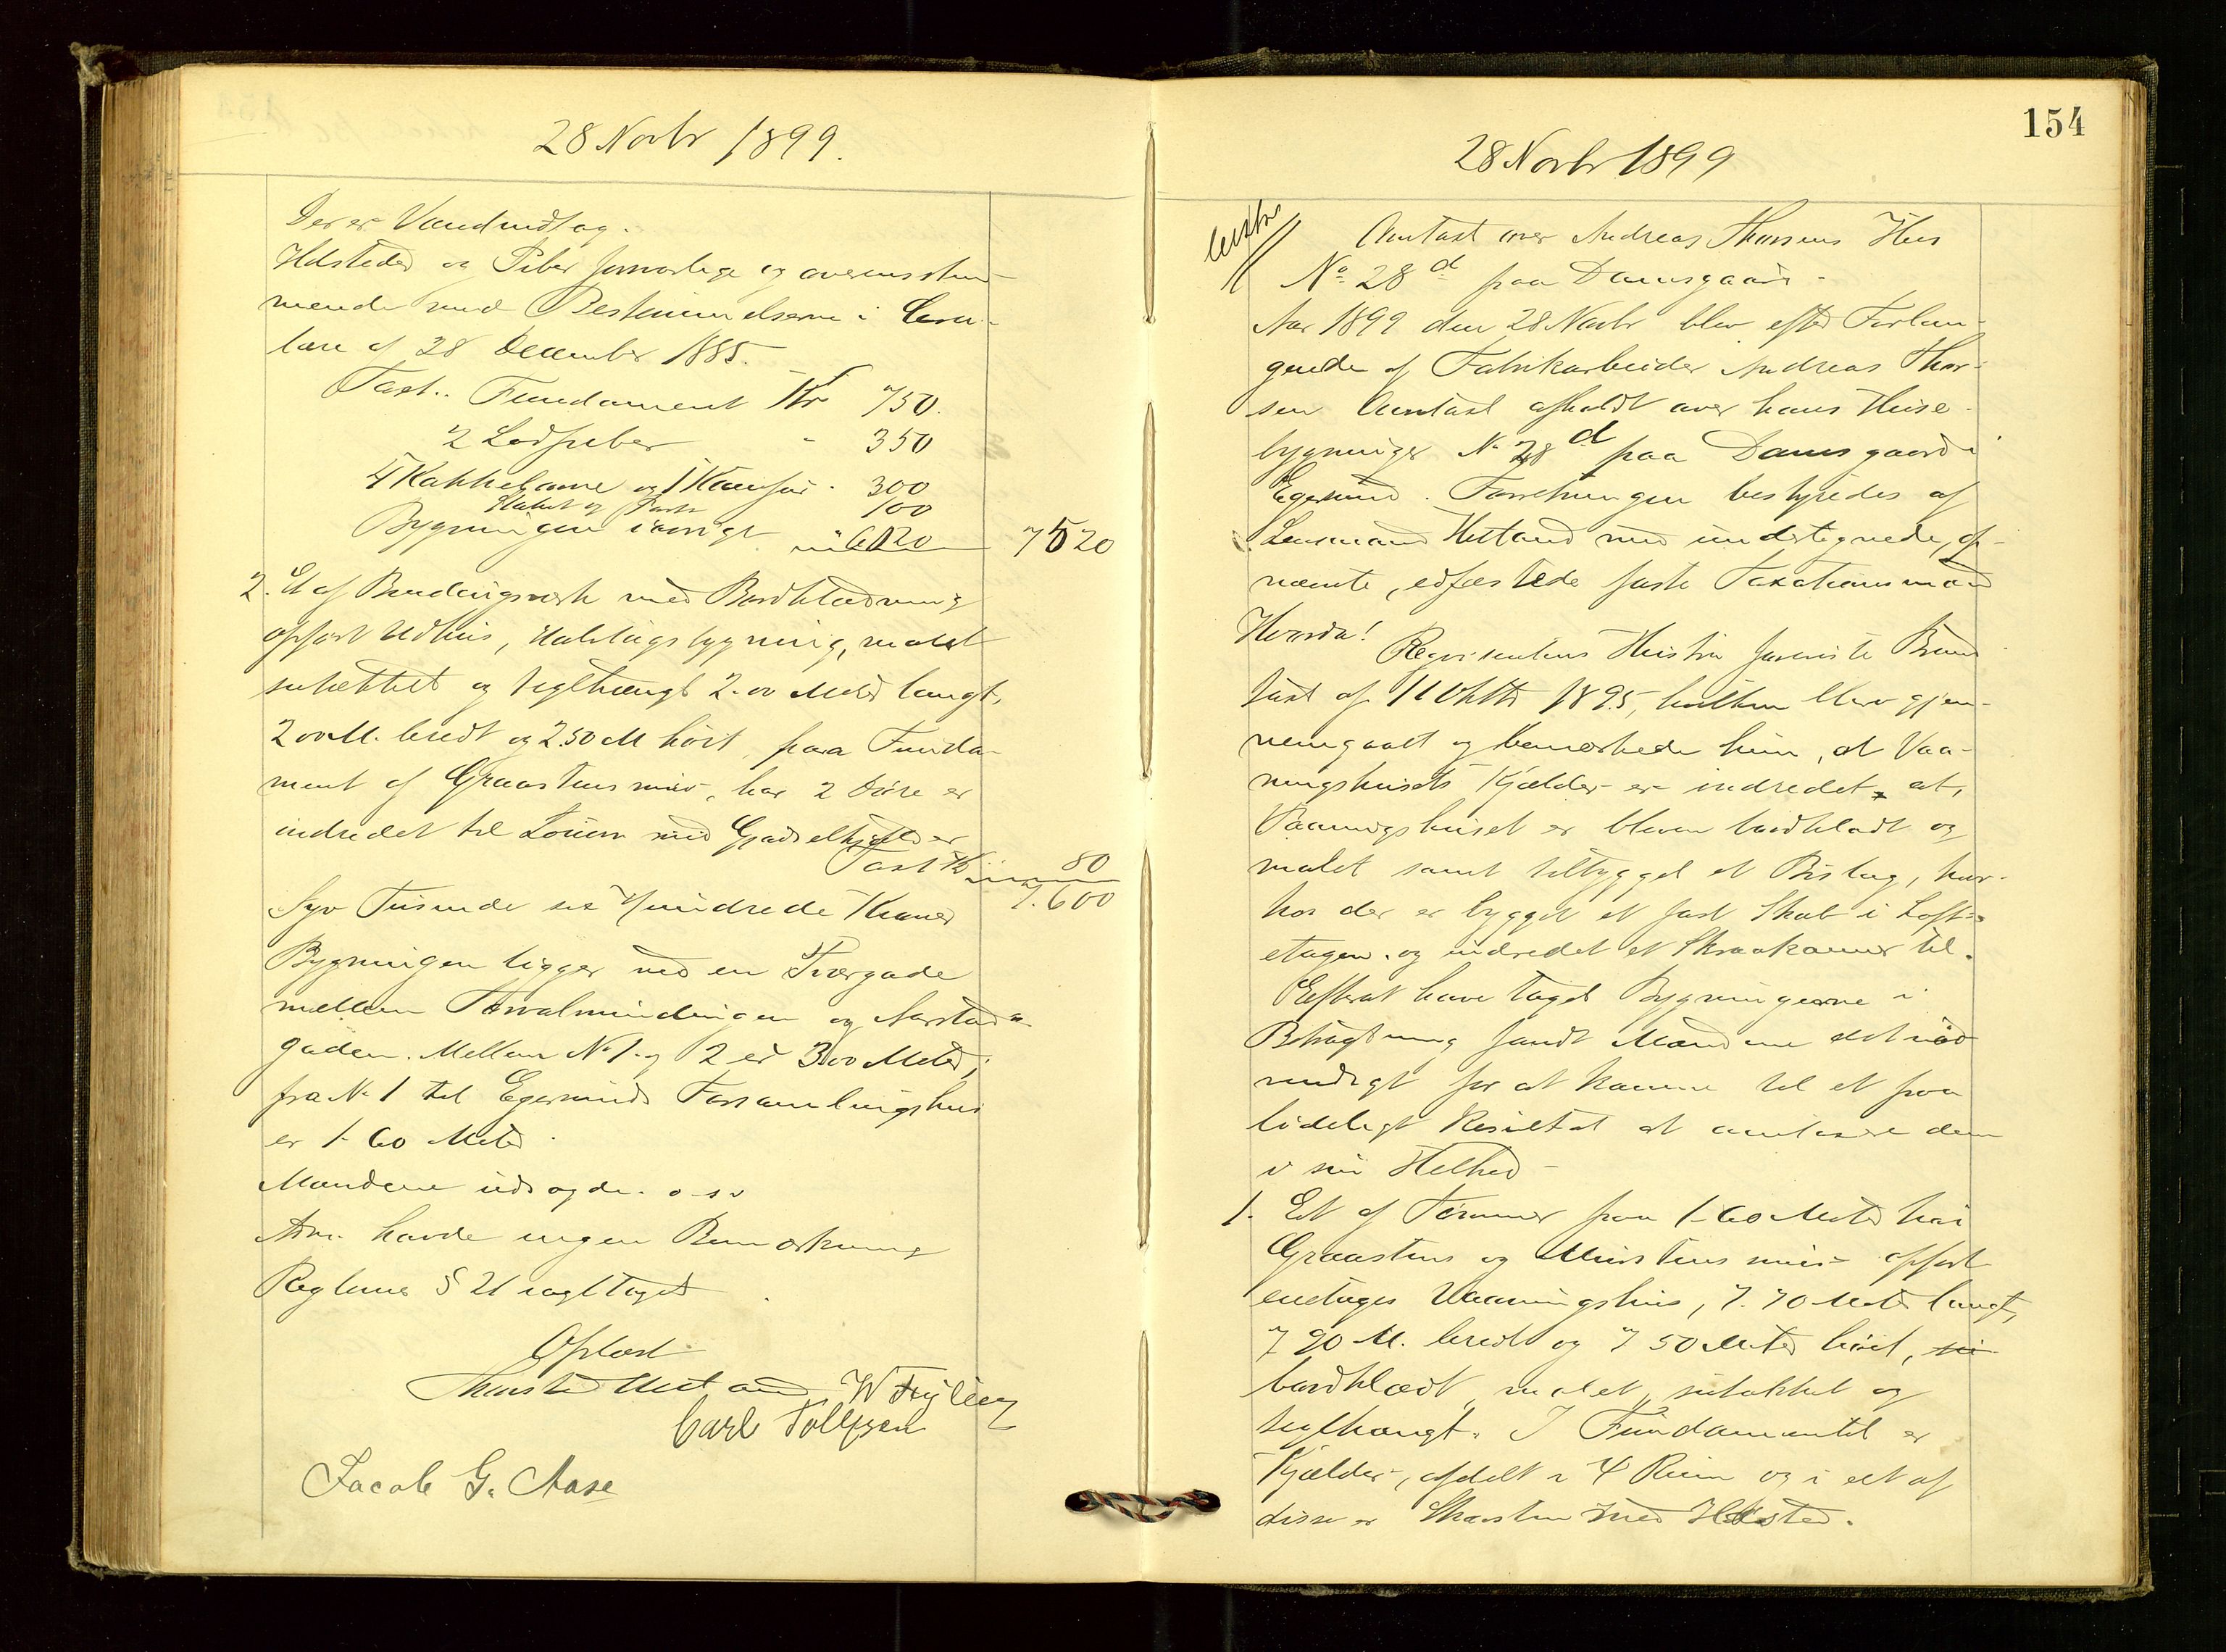 28 Novbr 1899.
Der er Vandudtag.
Ildsteder og Piber forsvarlige og overensstem-
mende med Bestemmelserne i Cirku-
lære af 28 December 1885.
Taxt: Fundament Kr 750.
2 Lodpiber " 350
4 Kakkelovne og 1 Komfur " 300
Skabet og 100
Bygningen iøvrigt 6020 7520
2. Et af Bindingsværk med Bordklædning
opført Udhus, Halvtagsbygning, malet
sutækket og teglhængt 2.00 Meter langt,
2 00 M. bredt og 2.50 M høit, paa Funda-
ment af Graastensmur, har 2 Døre er
indredet til Locum med Gjødselkjælder
Taxt Kr 80
Syv Tusende sex Hundrede Kroner 7.600
Bygningen ligger ved en Tværgade
mellem Torvalmindingen og Aarstad-
gaden. Mellem No 1 og 2 er 3.00 Meter,
fra No 1 til Egersunds Forsamlingshus
er 1.60 Meter.
Mændene udsagde o.s.v
Adm. havde ingen Bemærkning
Reglernes § 21 iagttaget
Oplæst
Thorsted Hetland W Frÿling
Carl Tollefsen
Jacob G. Aase
154
28 Novbr 1899
Omtaxt over Andreas Thorsens Hus
No 28 d paa Damsgaard.
Aar 1899 den 28 Novbr blev efter Forlan-
gende af Fabrikarbeider Andreas Thor-
sen Omtaxt afholdt over hans Huse-
bygninger No 28 d paa Damsgaard i
Egersund. Forretningen bestyredes af
Lensmand Hetland med undertegnede, op-
nævnte, edfæstede faste Taxationsmænd
Hvorda!
Requirentens Hustru foreviste Brand
taxt af 11 Oktbr 1895, hvilken blev gjen-
nemgaaet og bemærkede hun, at Vaa-
ningshusets Kjælder er indredet, at
Vaaningshuset er bleven bordklædt og
malet samt tilbygget et Bislag, hvor-
hos der er bygget et fast Skab i Loft-
etagen og indredet et Skraakammer til.
Efterat have taget Bygningerne i
Betragtning fandt Mændene det nød
vendigt for at komme til et paa
lideligt Resultat at omtaxere dem
i sin Helhed -
1. Et af Tømmer paa 1.60 Meter høi
Graastens og Murstensmur opført
enetages Vaaningshus, 7.70 Meter langt,
7 90 M. bredt og 7 50 Meter høit,
bordklædt, malet, sutækket og
teglhængt. I Fundamentet er
Kjælder, afdelt i 4 Rum og i et af
disse er Skorsten med Ildsted.